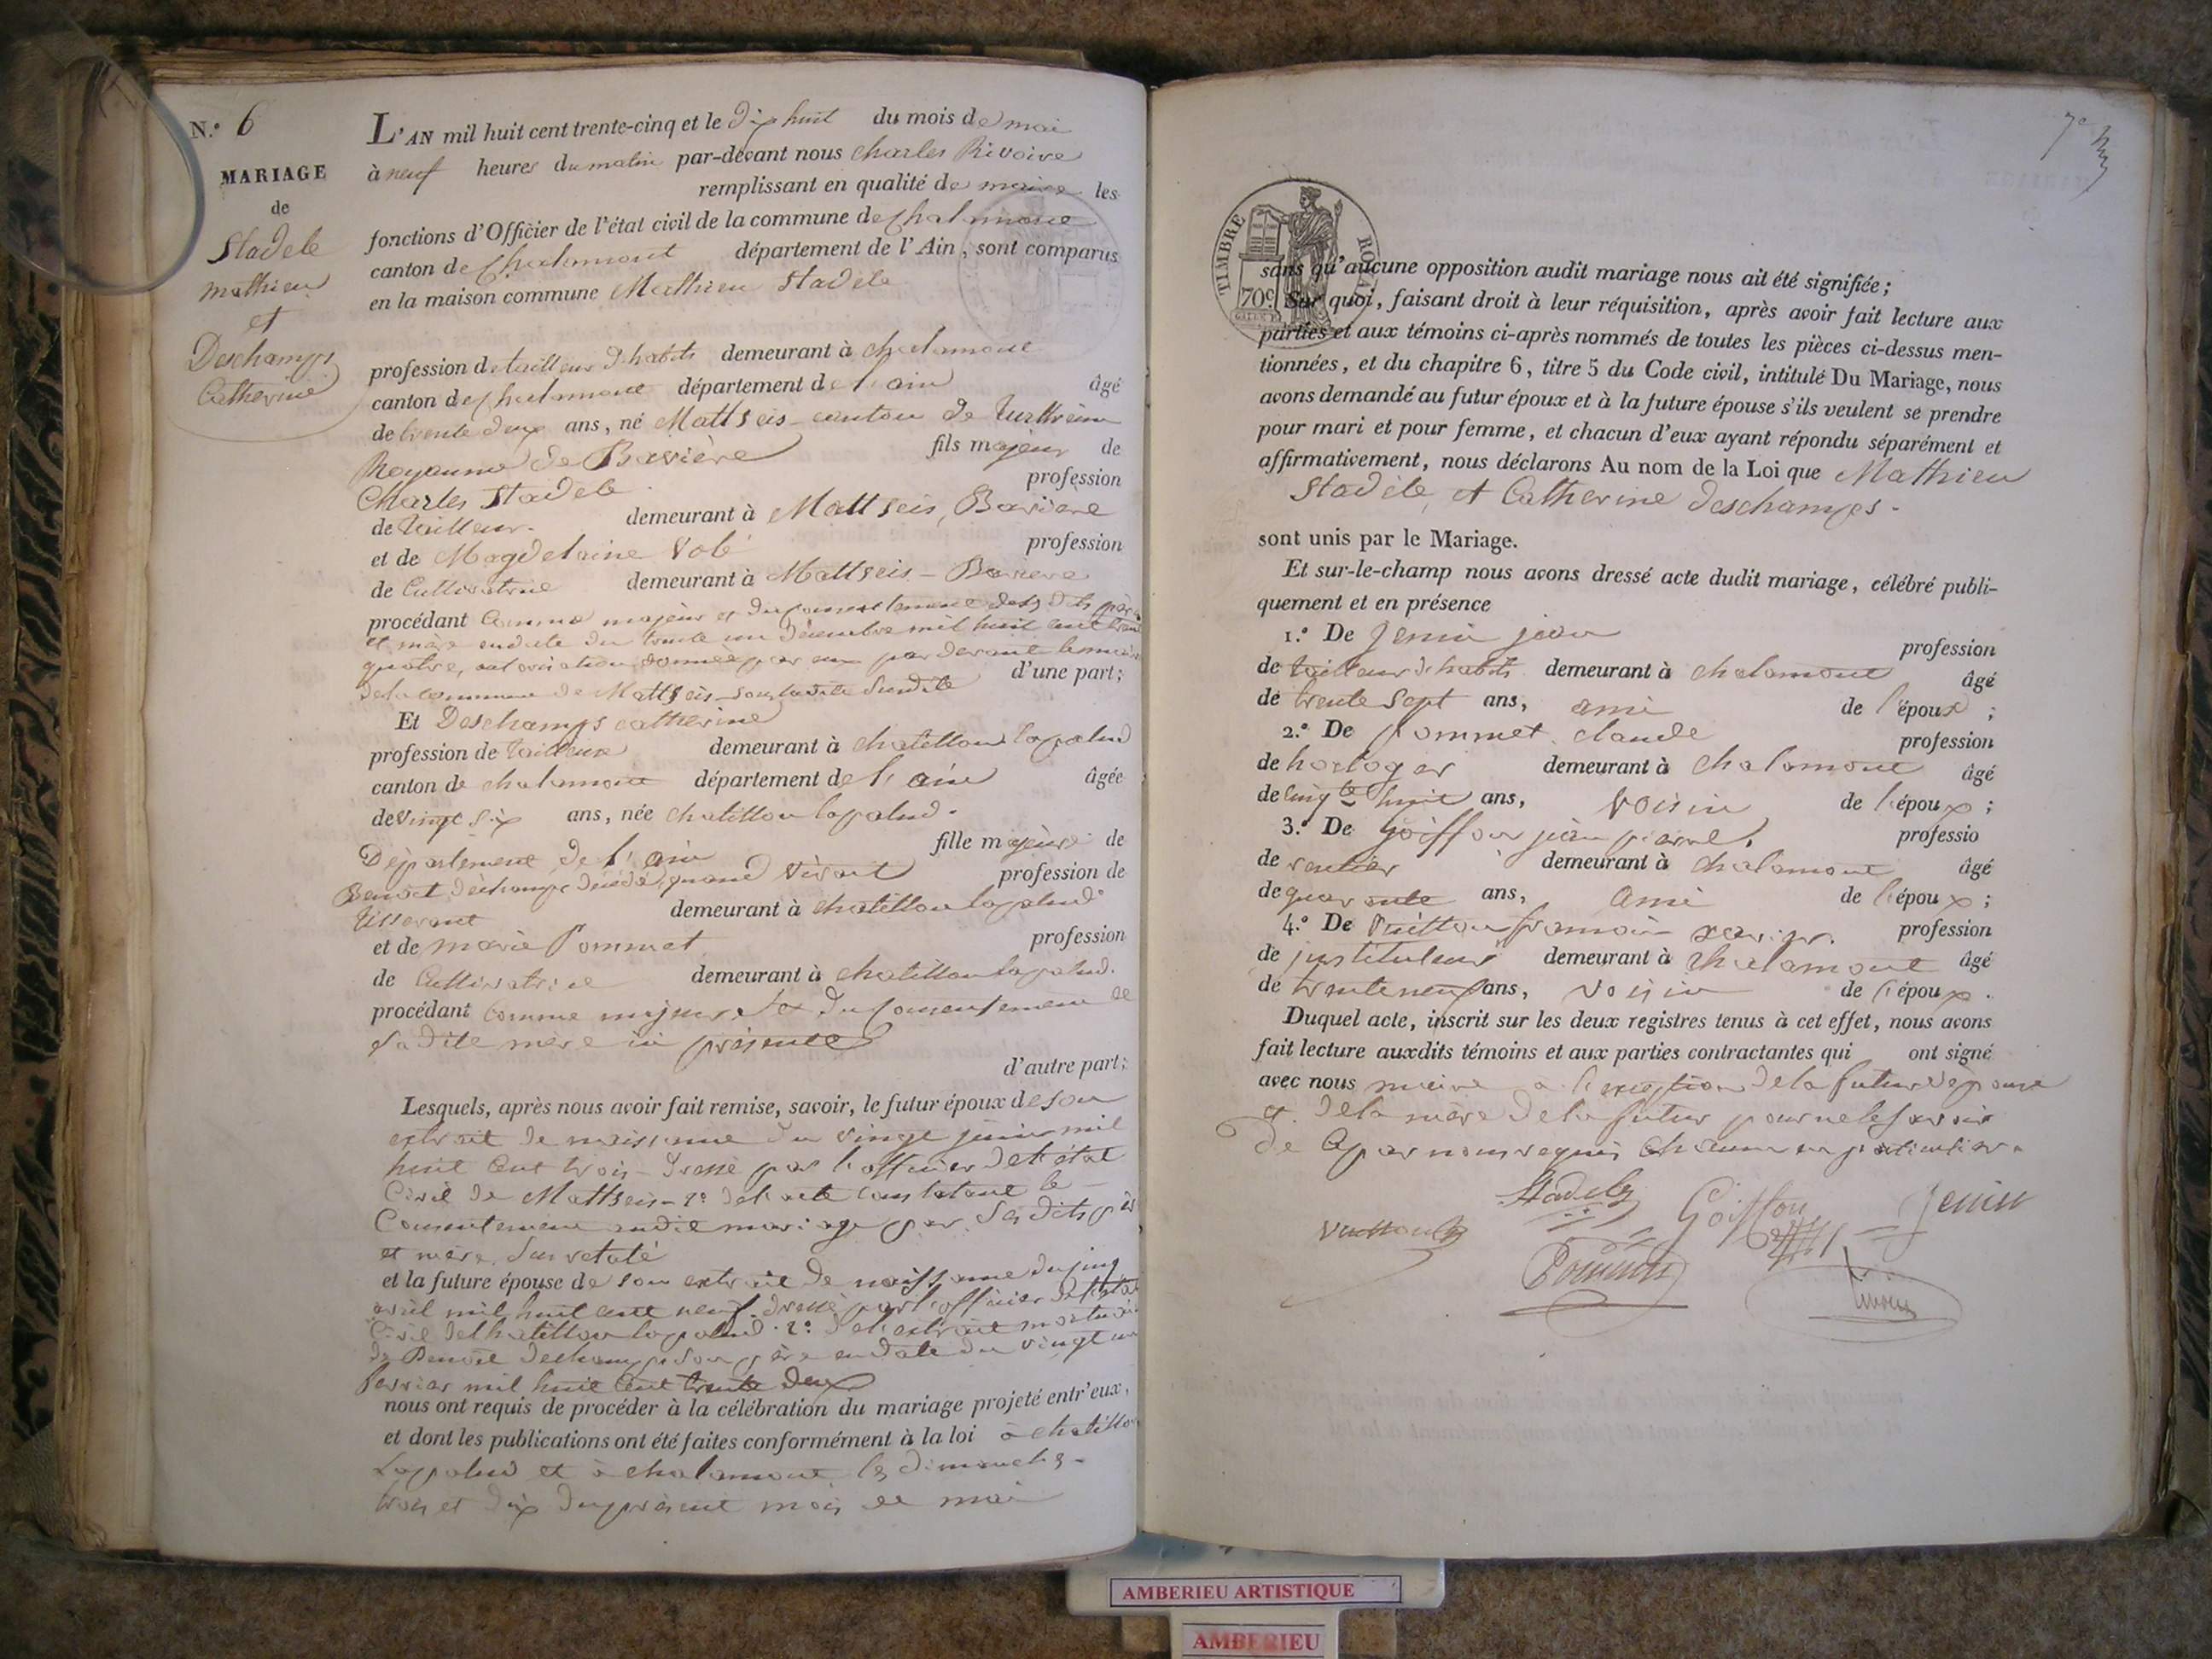 N.° 6
MARIAGE
de
Stadele
mathieu
et
Deschamps
Catherine
L'AN mil huit cent trente-cinq et le dix huit du mois de mai
à neuf heures du matin par-devant nous charles Rivoire
remplissant en qualité de maire les
fonctions d'Officier de l'état civil de la commune de chalamont
canton de Chalamont département de l'Ain, sont comparus
en la maison commune Mathieu Stadele
profession de tailleur d'habits demeurant à chalamont
canton de chalamont département de l'ain âgé
de trente deux ans, né Mattseis canton de
Royaume de Bavière fils majeur de
Charles Stadele profession
de tailleur demeurant à Mattseis, Baviere
et de Magdelaine Volé profession
de Cultivatrice demeurant à Mattseis - Baviere
procédant comme majeur et du consentement desdits père
et mère en date du trente un Décembre mil huit cent trente
quatre, autorisation donnée par eux par devant le maire
de la commune de Mattseis d'une part;
Et Deschamps catherine
profession de tailleuse demeurant à chatillon lapalud
canton de chalamont département de l'ain âgée
de vingt six ans, née chatillon lapalud.
Département de l'ain fille majeure de
Benoit déchamps décédé, quand vivait profession de
tisserant demeurant à chatillon lapalud
et de marie Pommet profession
de Cultivatrice demeurant à chatillon lapalud.
procédant comme majeure et du consentement de
sa dite mère ici présente
d'autre part;
Lesquels, après nous avoir fait remise, savoir, le futur époux de son
extrait de naissance du vingt juin mil
huit cent trois dressé par l'officier de l'état
Civil de Mattseis - 2° de l'acte constatant le
Consentement audit mariage par ses dits père
et mère sus relaté
et la future épouse de son extrait de naissance du cinq
avril mil huit cent neuf dressé par l'officier de l'état
Civil de Chatillon lapalud. 2° de l'extrait mortuaire
de Benoit dechamps son père en date du vingt un
fevrier mil huit cent trente deux
nous ont requis de procéder à la célébration du mariage projeté entr'eux,
et dont les publications ont été faites conformément à la loi à chatillon
Lapalud et à chalamont les dimanches
trois et dix du présent mois de mai
7e
TIMBRE ROYAL
70c
sans qu'aucune opposition audit mariage nous ait été signifiée;
Sur quoi, faisant droit à leur réquisition, après avoir fait lecture aux
parties et aux témoins ci-après nommés de toutes les pièces ci-dessus men-
tionnées, et du chapitre 6, titre 5 du Code civil, intitulé Du Mariage, nous
avons demandé au futur époux et à la future épouse s'ils veulent se prendre
pour mari et pour femme, et chacun d'eux ayant répondu séparément et
affirmativement, nous déclarons Au nom de la Loi que Mathieu
Stadele, et Catherine deschamps.
sont unis par le Mariage.
Et sur-le-champ nous avons dressé acte dudit mariage, célébré publi-
quement et en présence
1.° De Jenin jean profession
de tailleur d'habits demeurant à chalamont âgé
de trente sept ans, ami de l'époux;
2.° De Pommet claude profession
de horloger demeurant à chalamont âgé
de cinqte huit ans, voisin de l'époux;
3.° De Goiffon jean pierre, professio
de rentier demeurant à chalamont âgé
de quarante ans, ami de l'époux;
4.° De Vuitton françois xavier profession
de justituteur demeurant à chalamont âgé
de trente neuf ans, voisin de l'époux.
Duquel acte, inscrit sur les deux registres tenus à cet effet, nous avons
fait lecture auxdits témoins et aux parties contractantes qui ont signé
avec nous maire à l'exception de la future épouse
et de la mère de la futur pour ne le savoir
de ce par nous requis chacun en particulier.
Stadele
Goiffon
Jenin
Vuitton
Pommet
Rivoire
AMBERIEU ARTISTIQUE
AMBERIEU